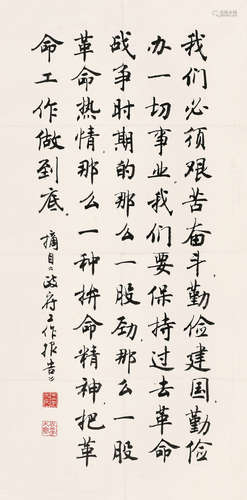 我们必须艰苦奋斗勤俭建国勤俭
办一切事业我们要保持过去革命
战争时期的那么一股劲那么一股
革命热情那么一种拼命精神把革
命工作做到底
摘自《政府工作报告》